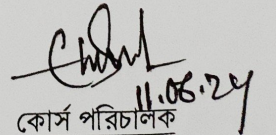 11.06.24
কোর্স পরিচালক